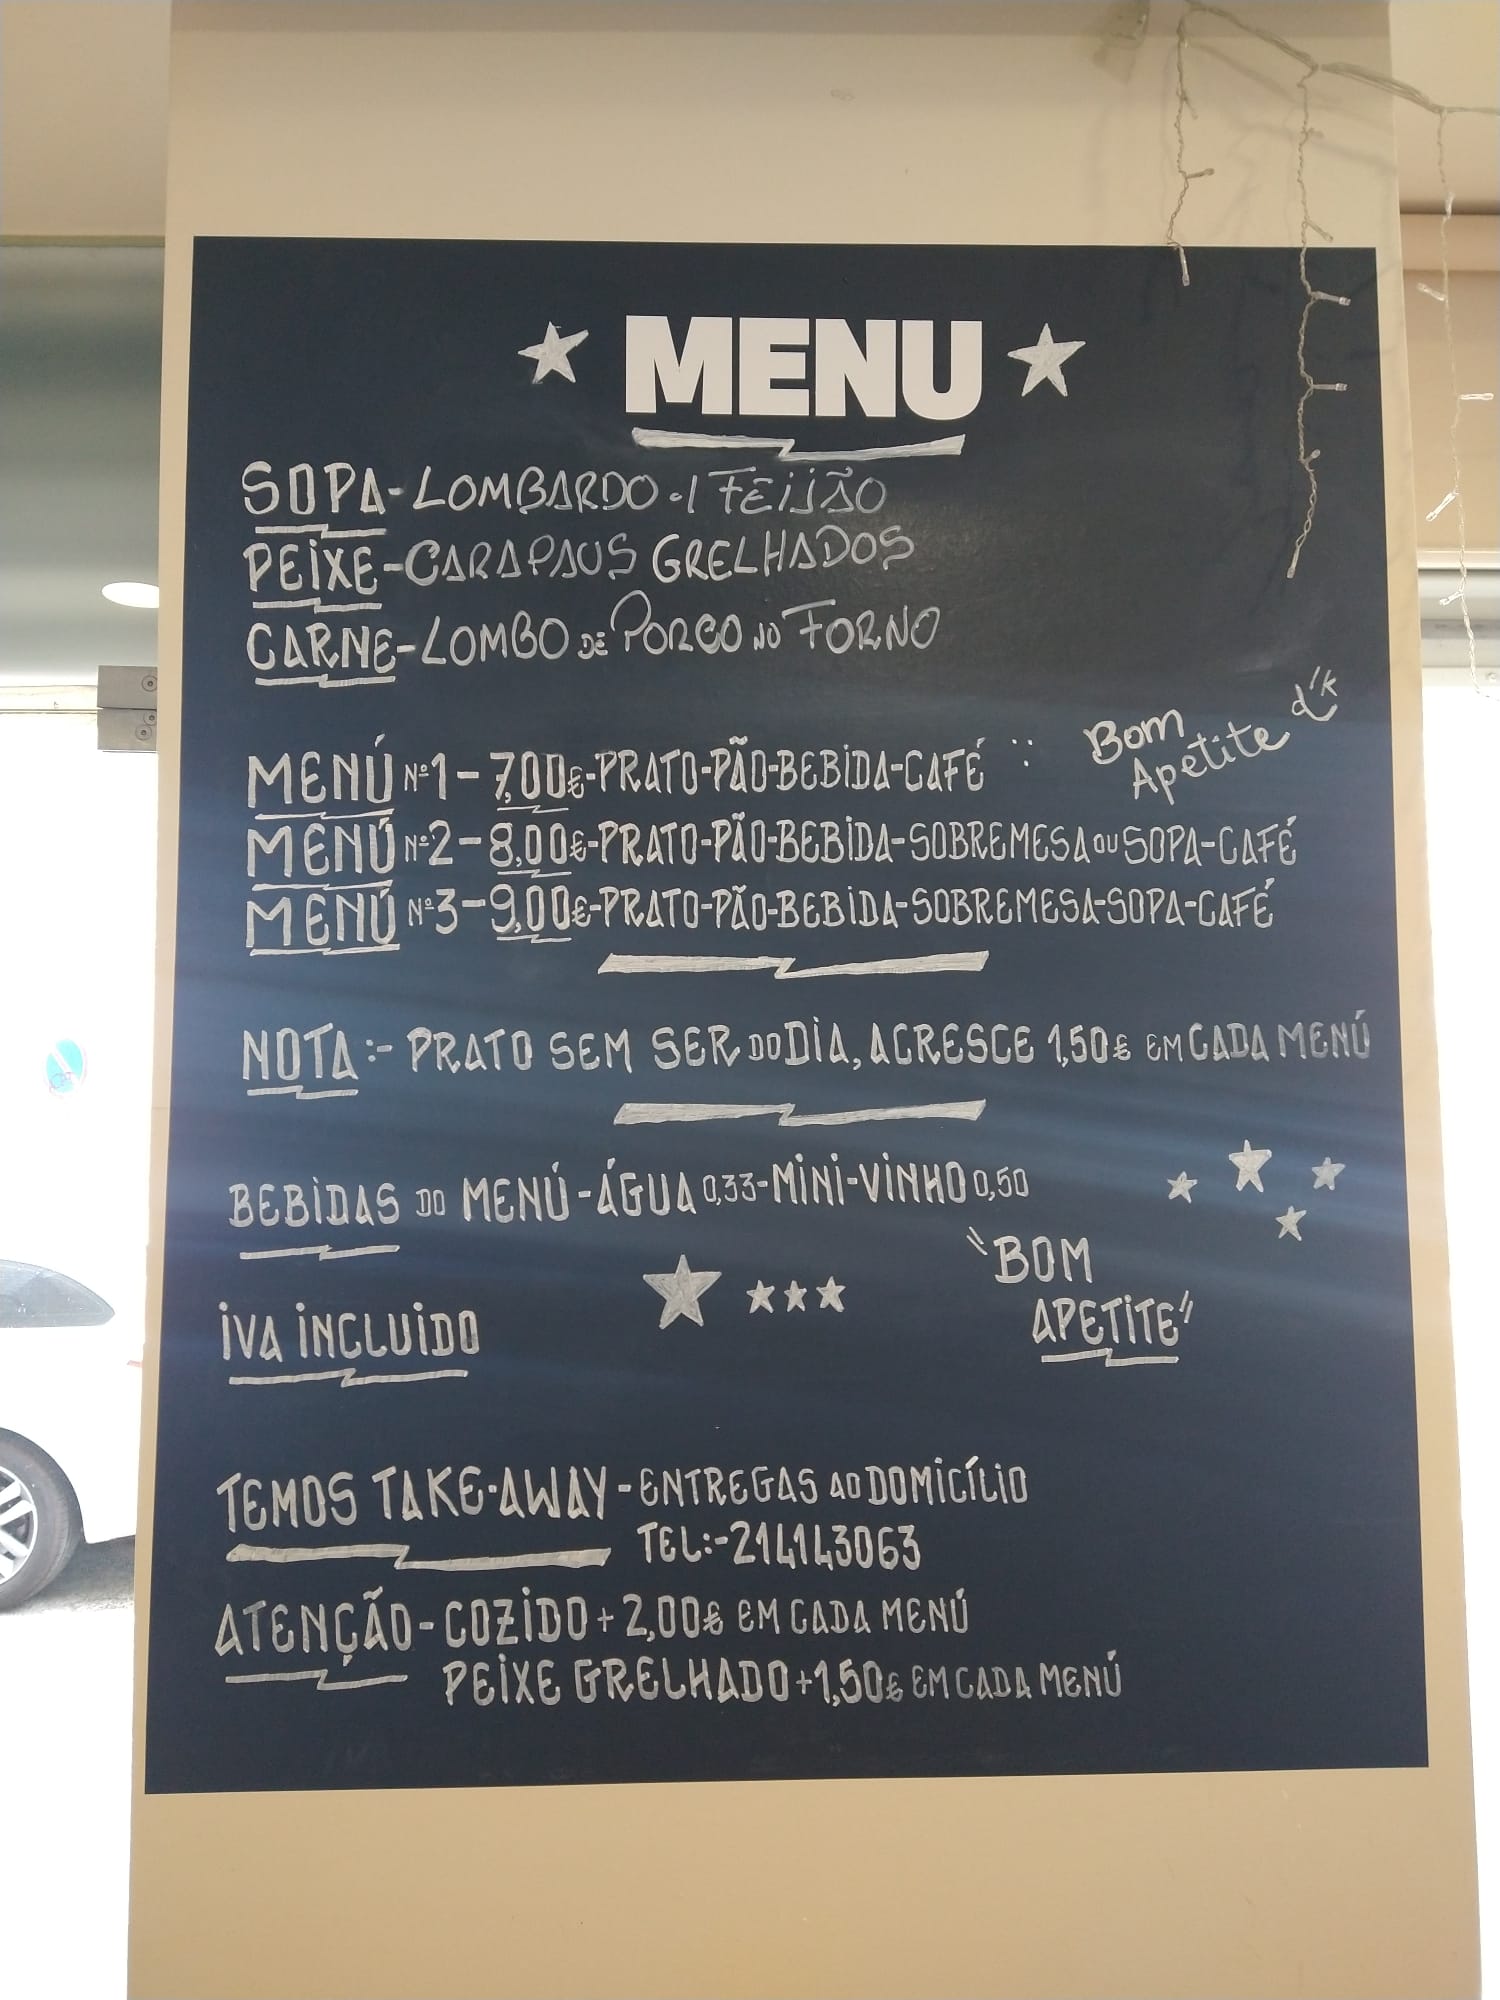 MENU
SOPA-LOMBARDO C/ FEIJÃO
PEIXE-CARAPAUS GRELHADOS
CARNE-LOMBO DE PORCO NO FORNO
Bom
Apetite
MENÚ Nº1-7,00€-PRATO-PÃO-BEBIDA-CAFÉ
MENÚ Nº2-8,00€-PRATO-PÃO-BEBIDA-SOBREMESA OU SOPA-CAFÉ
MENÚ Nº3-9,00€-PRATO-PÃO-BEBIDA-SOBREMESA-SOPA-CAFÉ
NOTA:- PRATO SEM SER DO DIA, ACRESCE 1,50€ EM CADA MENÚ
BEBIDAS DO MENÚ-ÁGUA 0,33-MINI-VINHO 0,50
"BOM
APETITE"
IVA INCLUIDO
TEMOS TAKE-AWAY-ENTREGAS AO DOMICÍLIO
TEL:-214143063
ATENÇÃO-COZIDO+2,00€ EM CADA MENÚ
PEIXE GRELHADO+1,50€ EM CADA MENÚ